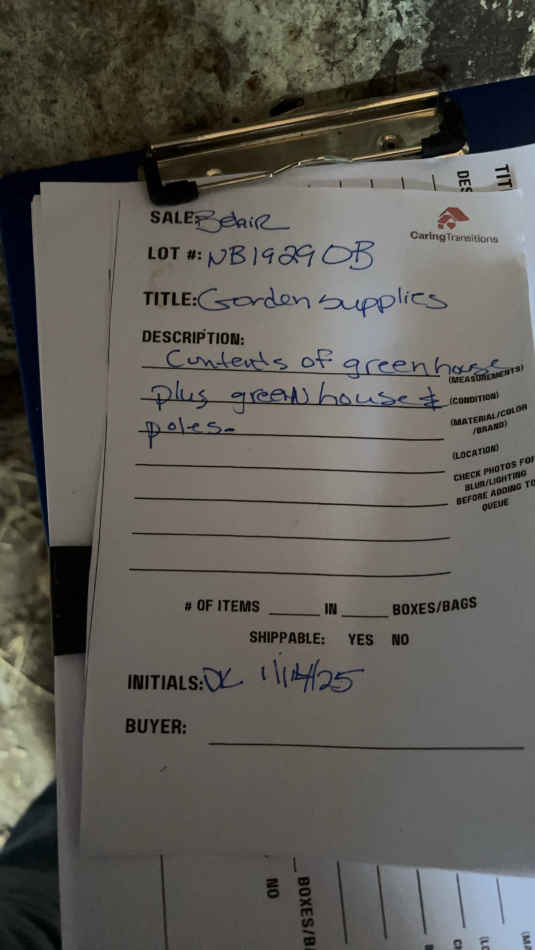 TIT
DES
SALE: Belair
CaringTransitions
LOT #: NB1929OB
TITLE: Gorden supplies
DESCRIPTION:
Contents of greenhouse
(MEASUREMENTS)
plus greenhouse &
(CONDITION)
poles.
(MATERIAL/COLOR
/BRAND)
(LOCATION)
CHECK PHOTOS FOR
BLUR/LIGHTING
BEFORE ADDING TO
QUEUE
# OF ITEMS ____ IN ____ BOXES/BAGS
SHIPPABLE: YES NO
INITIALS: DK 1/14/25
BUYER:
BOXES/B
NO